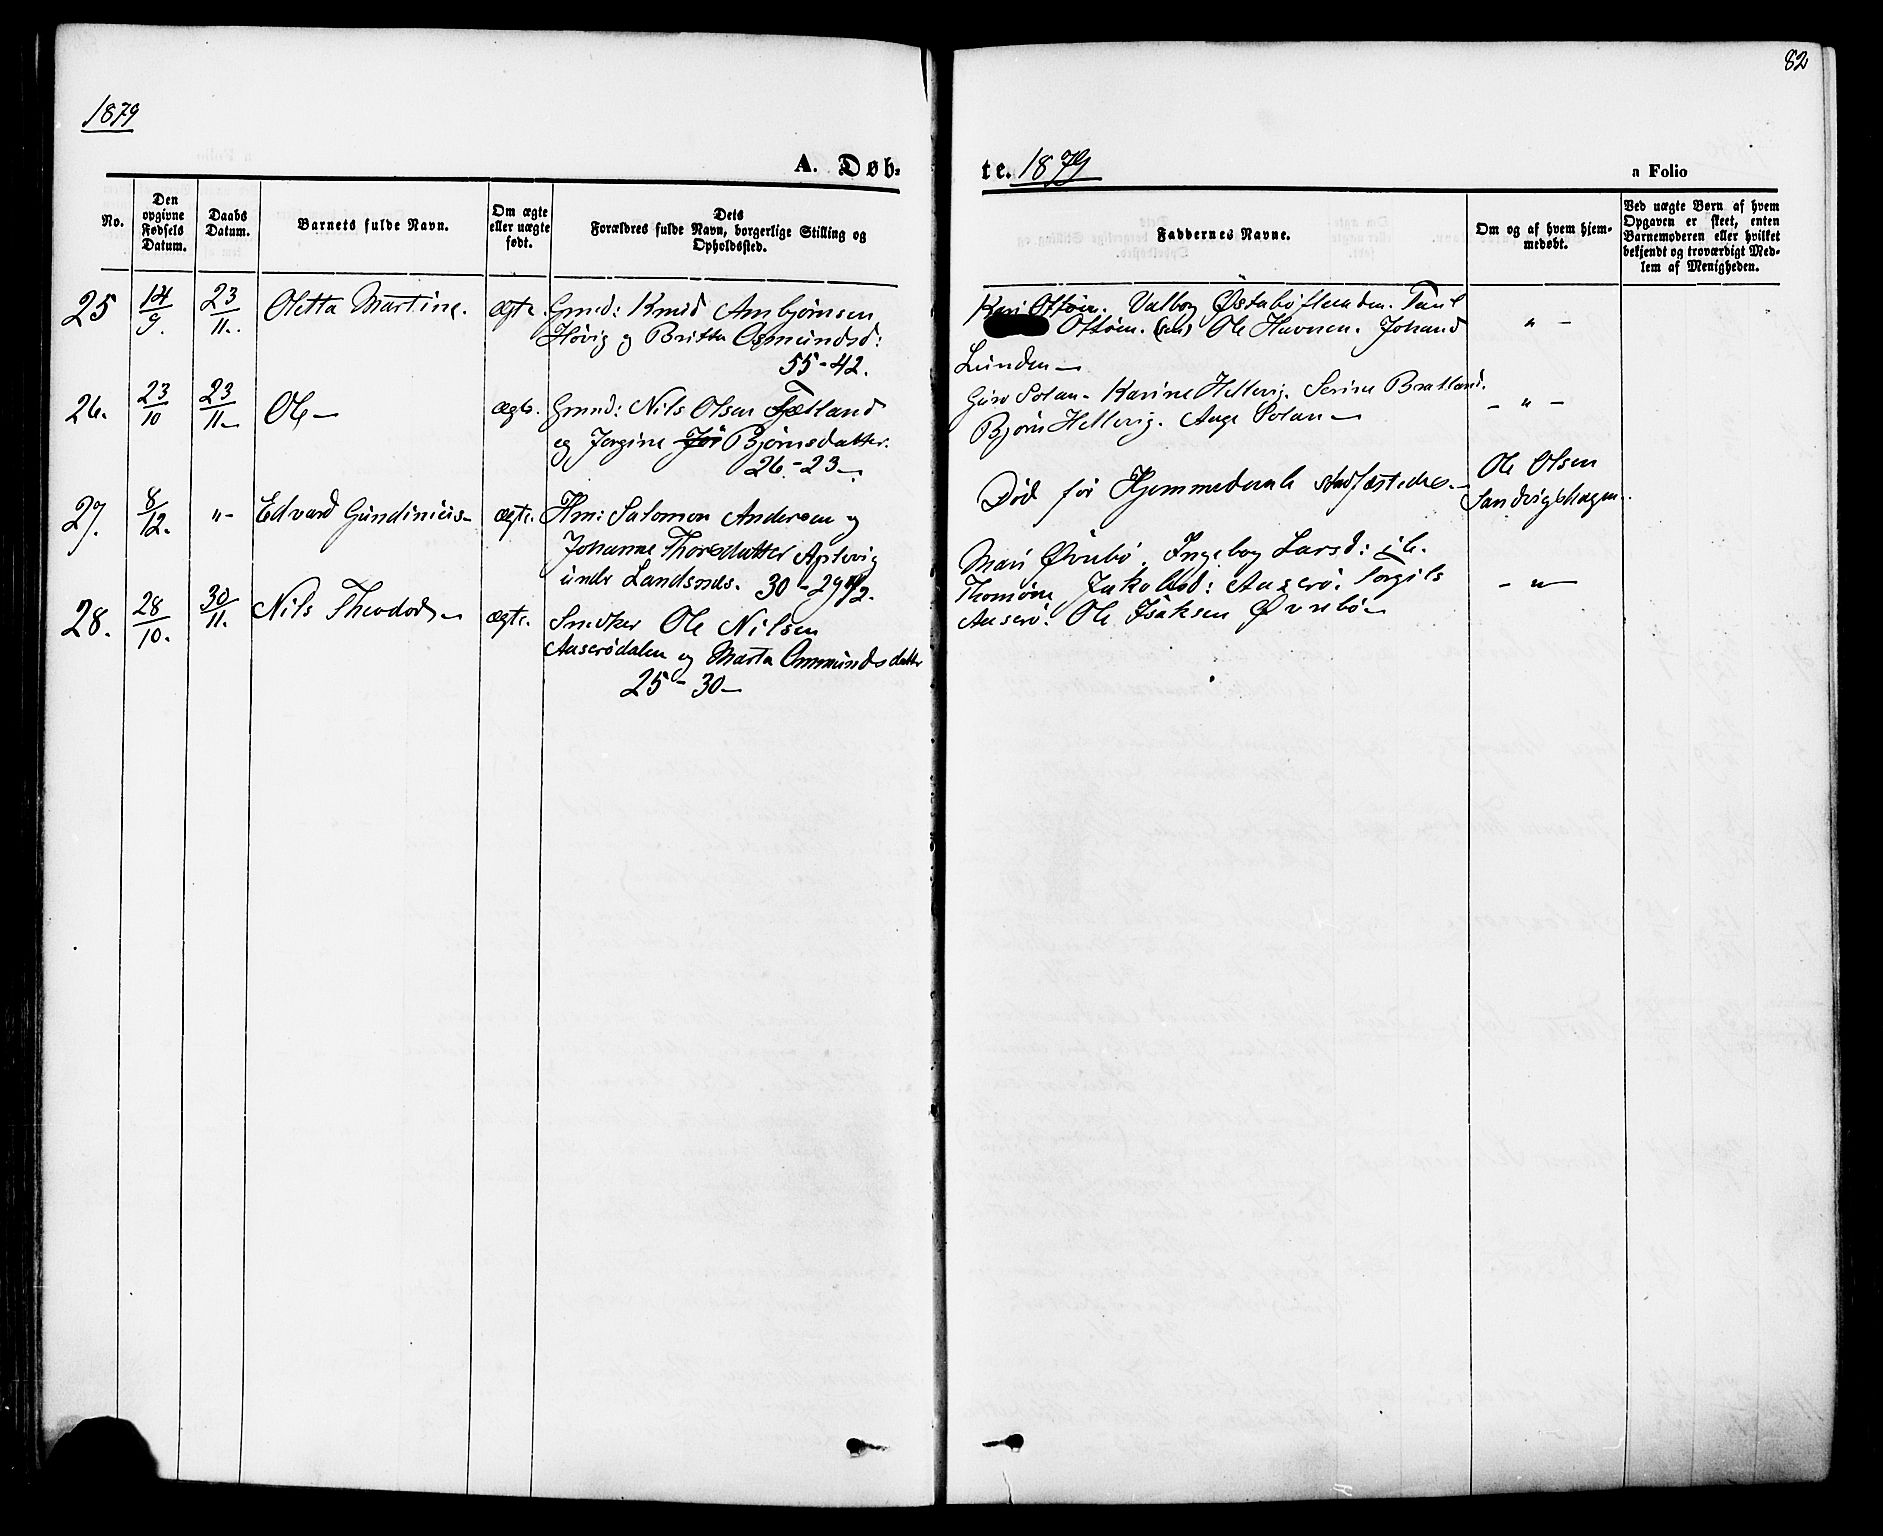 1879
82
A. Døb-
te. 1879
a Folio
No.
Den
opgivne
Fødsels
Datum.
Daabs
Datum.
Barnets fulde Navn.
Om ægte
eller uægte
født.
Dets
Forældres fulde Navn, borgerlige Stilling og
Opholdssted.
Faddernes Navne.
Om og af hvem hjem-
medøbt.
Ved uægte Børn af hvem
Opgaven er skeet, enten
Barnemoderen eller hvilket
bekjendt og troværdigt Med-
lem af Menigheden.
25 14/9. 23/11. Oletta Martine. ægte. Gmd: Knud Anbjørnsen
Høvig og Britta Osmundsd:
55-42.
Kari Ottøen. Valborg
Ottøen. (sen) Ole Havnen. Johand
Lunden —
" —
26. 23/10 23/11 — Ole — ægte. Gmnd: Nils Olsen Fjetland
og Jorgine Jør Bjørnsdatter.
26-23 —
Guro Solan. Karine Hellevig. Serine Bratland.
Bjørn Hellevig. Aage Solan —
— " —
27. 8/12. " — Edvard Gundinius — ægte. Hm: Salomon Andersen og
Johanne Thorsdatter Aplevig
under Landsnes. 30-29 1/2.
Død før Hjemmedaab stadfæstedes. —
Ole Olsen
Sandvigshagen.
28. 28/10. 30/11. Nils Theodor — ægte. Snedker Ole Nilsen
Auserødalen og Marta Ommundsdatter
25-30 —
Mari Øvrebø. Ingeborg Larsd: ib.
Jakobsd: Auserø. Torgils
Auserø. Ole Isaksen Øvrebø —
— " —